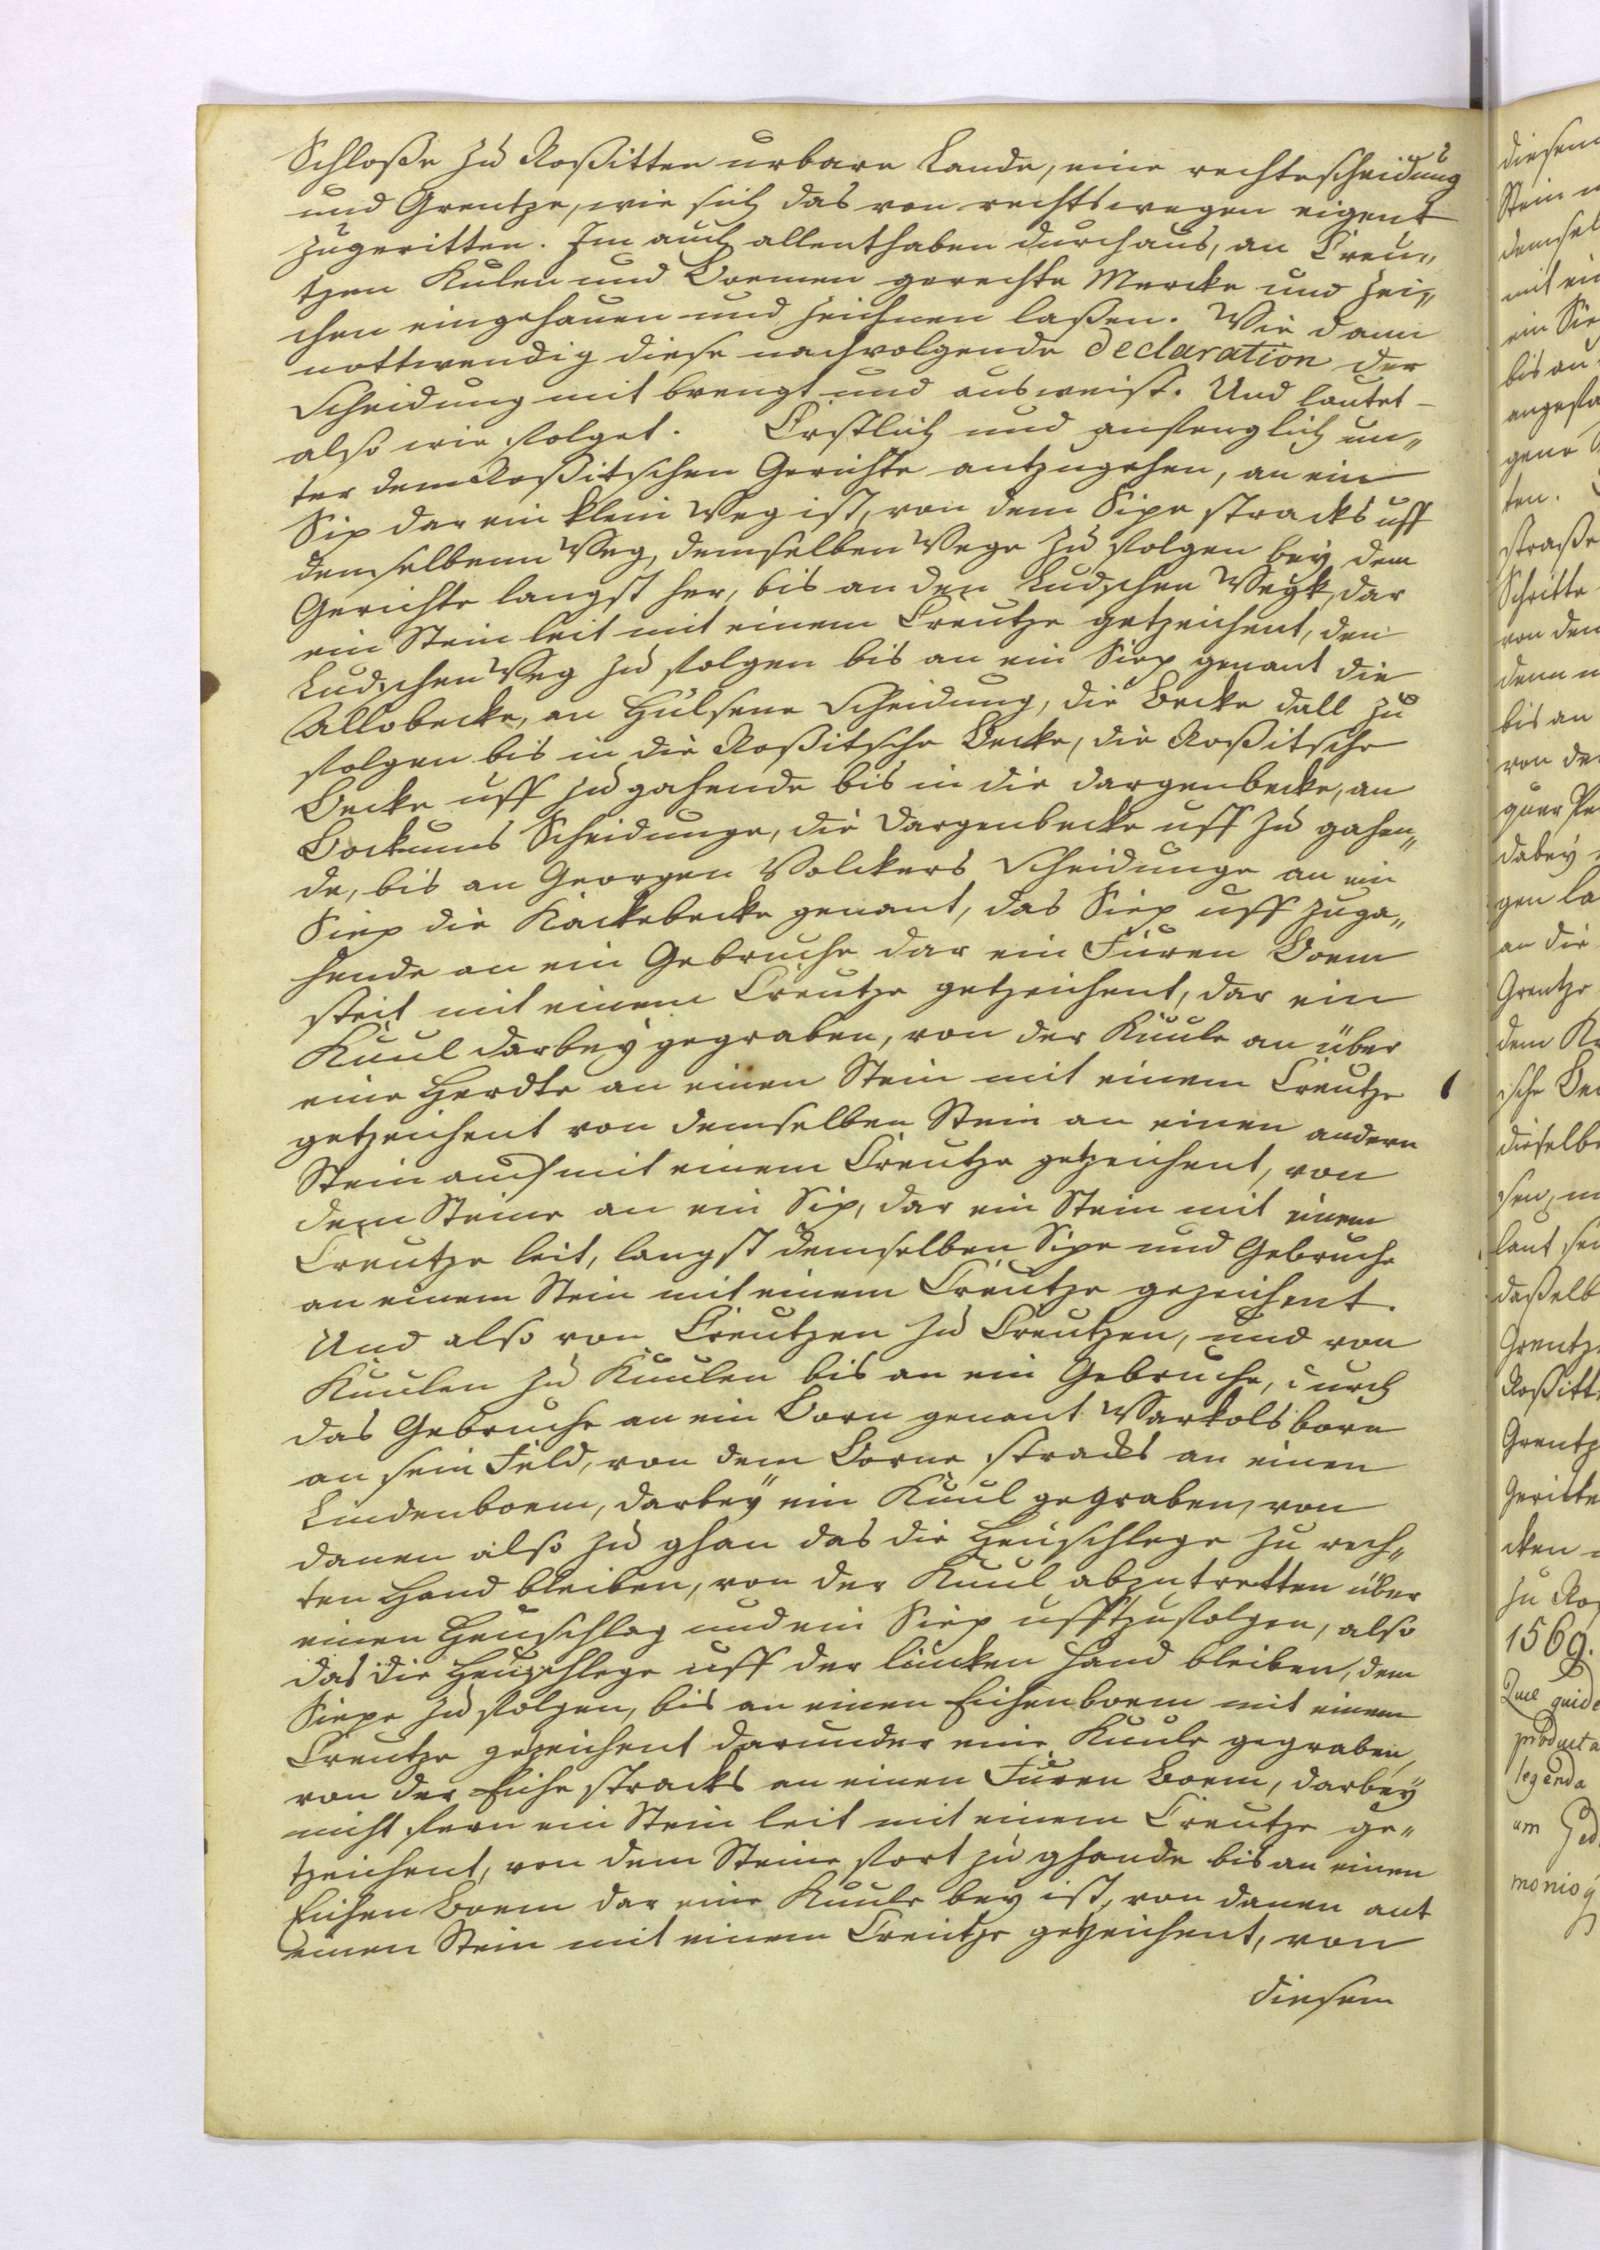 Schloße zu Roßitten urbare Lande, eine rechtescheidung
und Grentze, wie sich das von rechtswegen eigent
zugeritten. Im auch allenthaben durchaus, an Creu„
tzen Kulen und Boemen gerechte Mercke und Zei„
chen eingehauen und zeichnen laßen. Wie dann
nottwendig diese nachvolgende Declaration der
Scheidung mit brengt und ausweist. Und lautet
also wie folget. Erstlich und anfenglich un„
ter dem Roßitschen Gerichte antzugehen, an ein
Sip dar ein klein Weg ist, von dem Sipe stracks uff
demselbenn Weg, demselben Wege zu folgen bey dem
Gerichte langst her, bis an den Ludschen Wegk, dar
ein Stein leit mit einem Creutze getzeichent, den
Ludschen Weg zu folgen bis an ein Siep genant die
Allobecke, an Hülsene Scheidung, die Becke dall zu
folgen bis in die Roßitsche Becke, die Roßitsche
Becke uff zu gahende bis in die dargenbecke, an
Bockums Scheidunge, die Dargenbecke uff zu gahen„
de, bis an Georgen Volckers Scheidunge an ein
Siep die Kackebecke genant, das Siep uff zuga„
hende an ein Gebruche dar ein Füren Boem
steit mit einem Creutze getzeichent, dar ein
Kuul darbey gegraben, von der Kuule an über
eine Herdte an einen Stein mit einem Creutze
getzeichent von demselben Stein an einen andern
Stein auch mit einem Creutze getzeichent, von
dem Steine an ein Sip, dar ein Stein mit einem
Creutze leit, langst demselben Sipe und Gebruche
an einem Stein mit einem Creutze gezeichent.
Und also von Creutzen zu Creutzen, und von
Kuulen zu Kuulen bis an ein Gebruche, durch
das Gebruche an ein Born genant Warkols born
an sein Feld, von dem Borne stracks an einen
Lindenboem, darbey ein Kuul gegraben, von
danen also zu ghan das die Heuschlege zu rech„
ten Hand bleiben, von der Kuul abzutretten über
einen Heuschlag und ein Siep ufftzufolgen, also
das die Heuschlege uff der lincken Hand bleiben, dem
Siepe zu folgen, bis an einen Eichenboem mit einem
Creutze gezeichent darunder eine Kuule gegraben,
von der Eiche stracks an einen Füren Boem, darbey
nicht fern ein Stein leit mit einem Creutze ge„
tzeichent, von dem Steine fort zu ghande bis an einen
Eichen Boem dar eine Kuule bey ist, von danen ant
einen Stein mit einem Creutze getzeichent, von
diesem